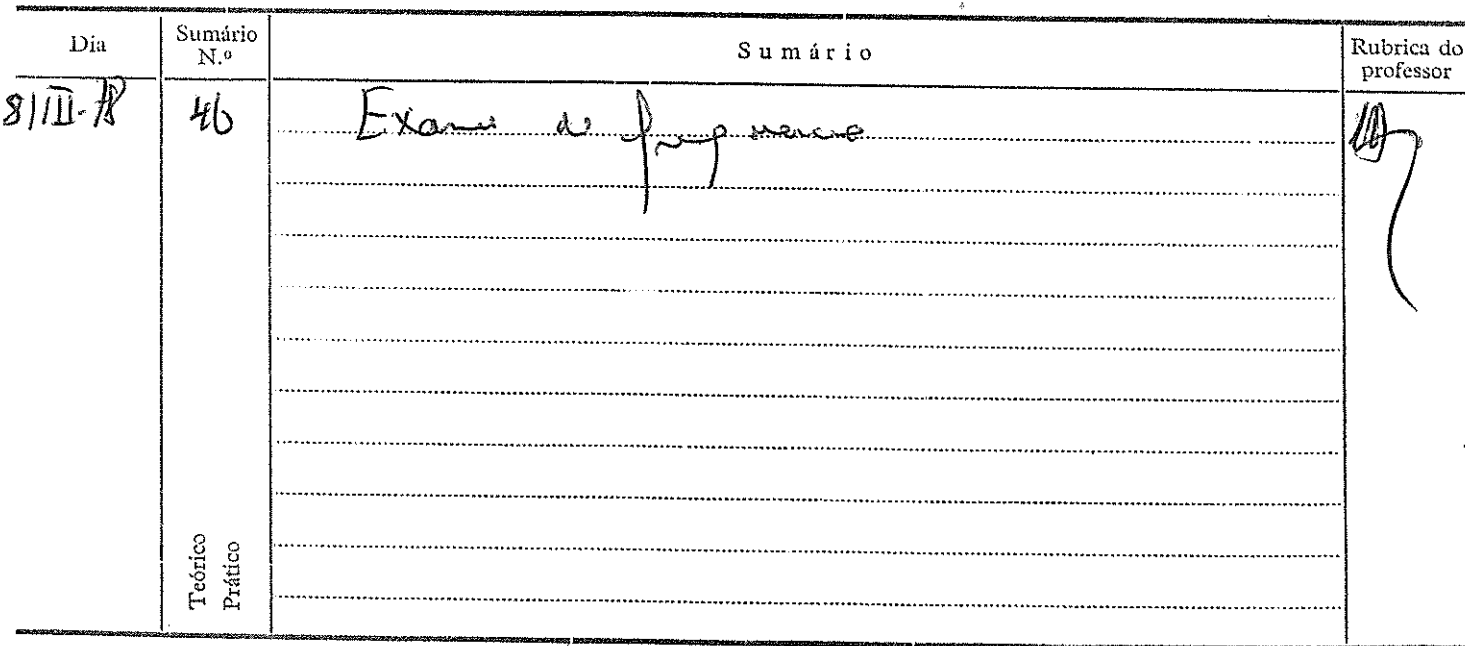 Dia
Sumário N.º
Sumário
Rubrica do professor
46
Exame de frequencia
Teórico
Prático